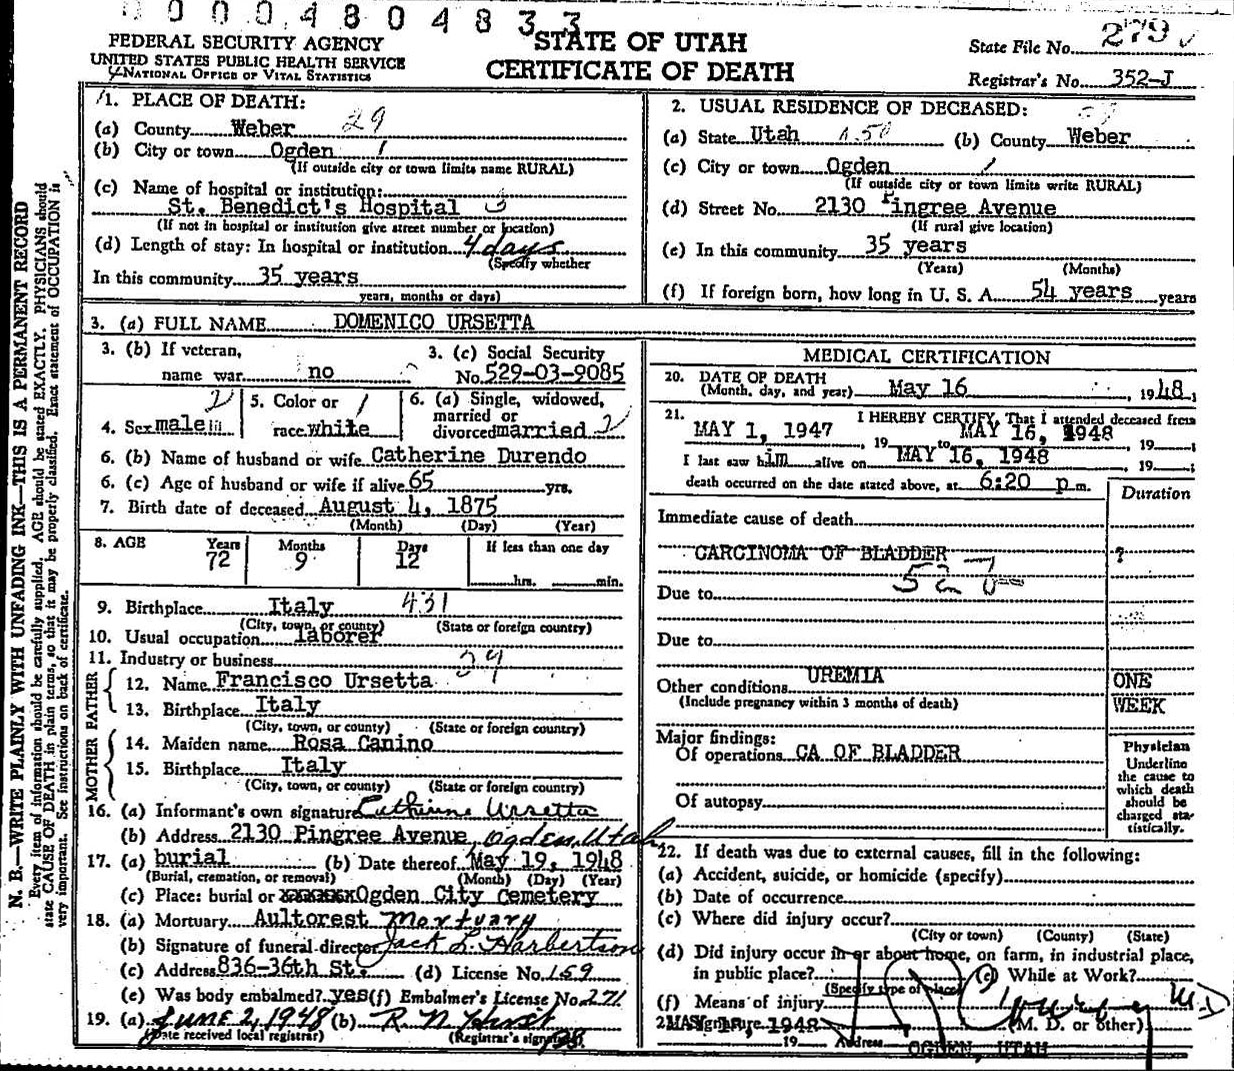 0004804833
FEDERAL SECURITY AGENCY
UNITED STATES PUBLIC HEALTH SERVICE
NATIONAL OFFICE OF VITAL STATISTICS
STATE OF UTAH
CERTIFICATE OF DEATH
State File No. 279
Registrar's No. 352-J
N. B.—WRITE PLAINLY WITH UNFADING INK—THIS IS A PERMANENT RECORD
Every item of information should be carefully supplied. AGE should be stated EXACTLY. PHYSICIANS should
state CAUSE OF DEATH in plain terms, so that it may be properly classified. Exact statement of OCCUPATION is
very important. See instructions on back of certificate.
1. PLACE OF DEATH:
(a) County Weber 29
(b) City or town Ogden 1
(If outside city or town limits name RURAL)
(c) Name of hospital or institution:
St. Benedict's Hospital
(If not in hospital or institution give street number or location)
(d) Length of stay: In hospital or institution 4 days
(Specify whether
In this community 35 years
years, months or days)
2. USUAL RESIDENCE OF DECEASED:
(a) State Utah (b) County Weber
(c) City or town Ogden 1
(If outside city or town limits write RURAL)
(d) Street No. 2130 Pingree Avenue
(If rural give location)
(e) In this community 35 years
(Years) (Months)
(f) If foreign born, how long in U. S. A. 54 years years
3. (a) FULL NAME DOMENICO URSETTA
3. (b) If veteran,
name war no
3. (c) Social Security
No. 529-03-9085
4. Sex male
5. Color or
race white
6. (a) Single, widowed,
married or
divorced married 2
6. (b) Name of husband or wife Catherine Durendo
6. (c) Age of husband or wife if alive 65 yrs.
7. Birth date of deceased August 4, 1875
(Month) (Day) (Year)
8. AGE Years Months Days If less than one day
72 9 12 hrs. min.
9. Birthplace Italy 431
(City, town, or county) (State or foreign country)
10. Usual occupation laborer
11. Industry or business
FATHER
12. Name Francisco Ursetta
13. Birthplace Italy
(City, town, or county) (State or foreign country)
MOTHER
14. Maiden name Rosa Canino
15. Birthplace Italy
(City, town, or county) (State or foreign country)
16. (a) Informant's own signature Catherine Ursetta
(b) Address 2130 Pingree Avenue, Ogden, Utah
17. (a) burial (b) Date thereof May 19, 1948
(Burial, cremation, or removal) (Month) (Day) (Year)
(c) Place: burial or xxxxxx Ogden City Cemetery
18. (a) Mortuary Aultorest Mortuary
(b) Signature of funeral director Jack L. Harbertson
(c) Address 836-36th St. (d) License No. 159
(e) Was body embalmed? yes (f) Embalmer's License No. 271
19. (a) JUNE 2, 1948 (b)
(Date received local registrar) (Registrar's signature)
MEDICAL CERTIFICATION
20. DATE OF DEATH
(Month, day, and year) May 16, 1948
21. I HEREBY CERTIFY, That I attended deceased from
MAY 1, 1947, 19 to MAY 16, 1948, 19
I last saw him alive on MAY 16, 1948, 19
death occurred on the date stated above, at 6:20 p.m.
Duration
Immediate cause of death
CARCINOMA OF BLADDER ?
Due to
Due to
Other conditions UREMIA ONE
(Include pregnancy within 3 months of death) WEEK
Major findings:
Of operations CA OF BLADDER
Of autopsy
Physician
Underline
the cause to
which death
should be
charged sta-
tistically.
22. If death was due to external causes, fill in the following:
(a) Accident, suicide, or homicide (specify)
(b) Date of occurrence
(c) Where did injury occur?
(City or town) (County) (State)
(d) Did injury occur in or about home, on farm, in industrial place,
in public place? (e) While at Work?
(Specify type of place)
(f) Means of injury
Signature M.D.
MAY 18, 1948 (M. D. or other)
19 Address OGDEN, UTAH